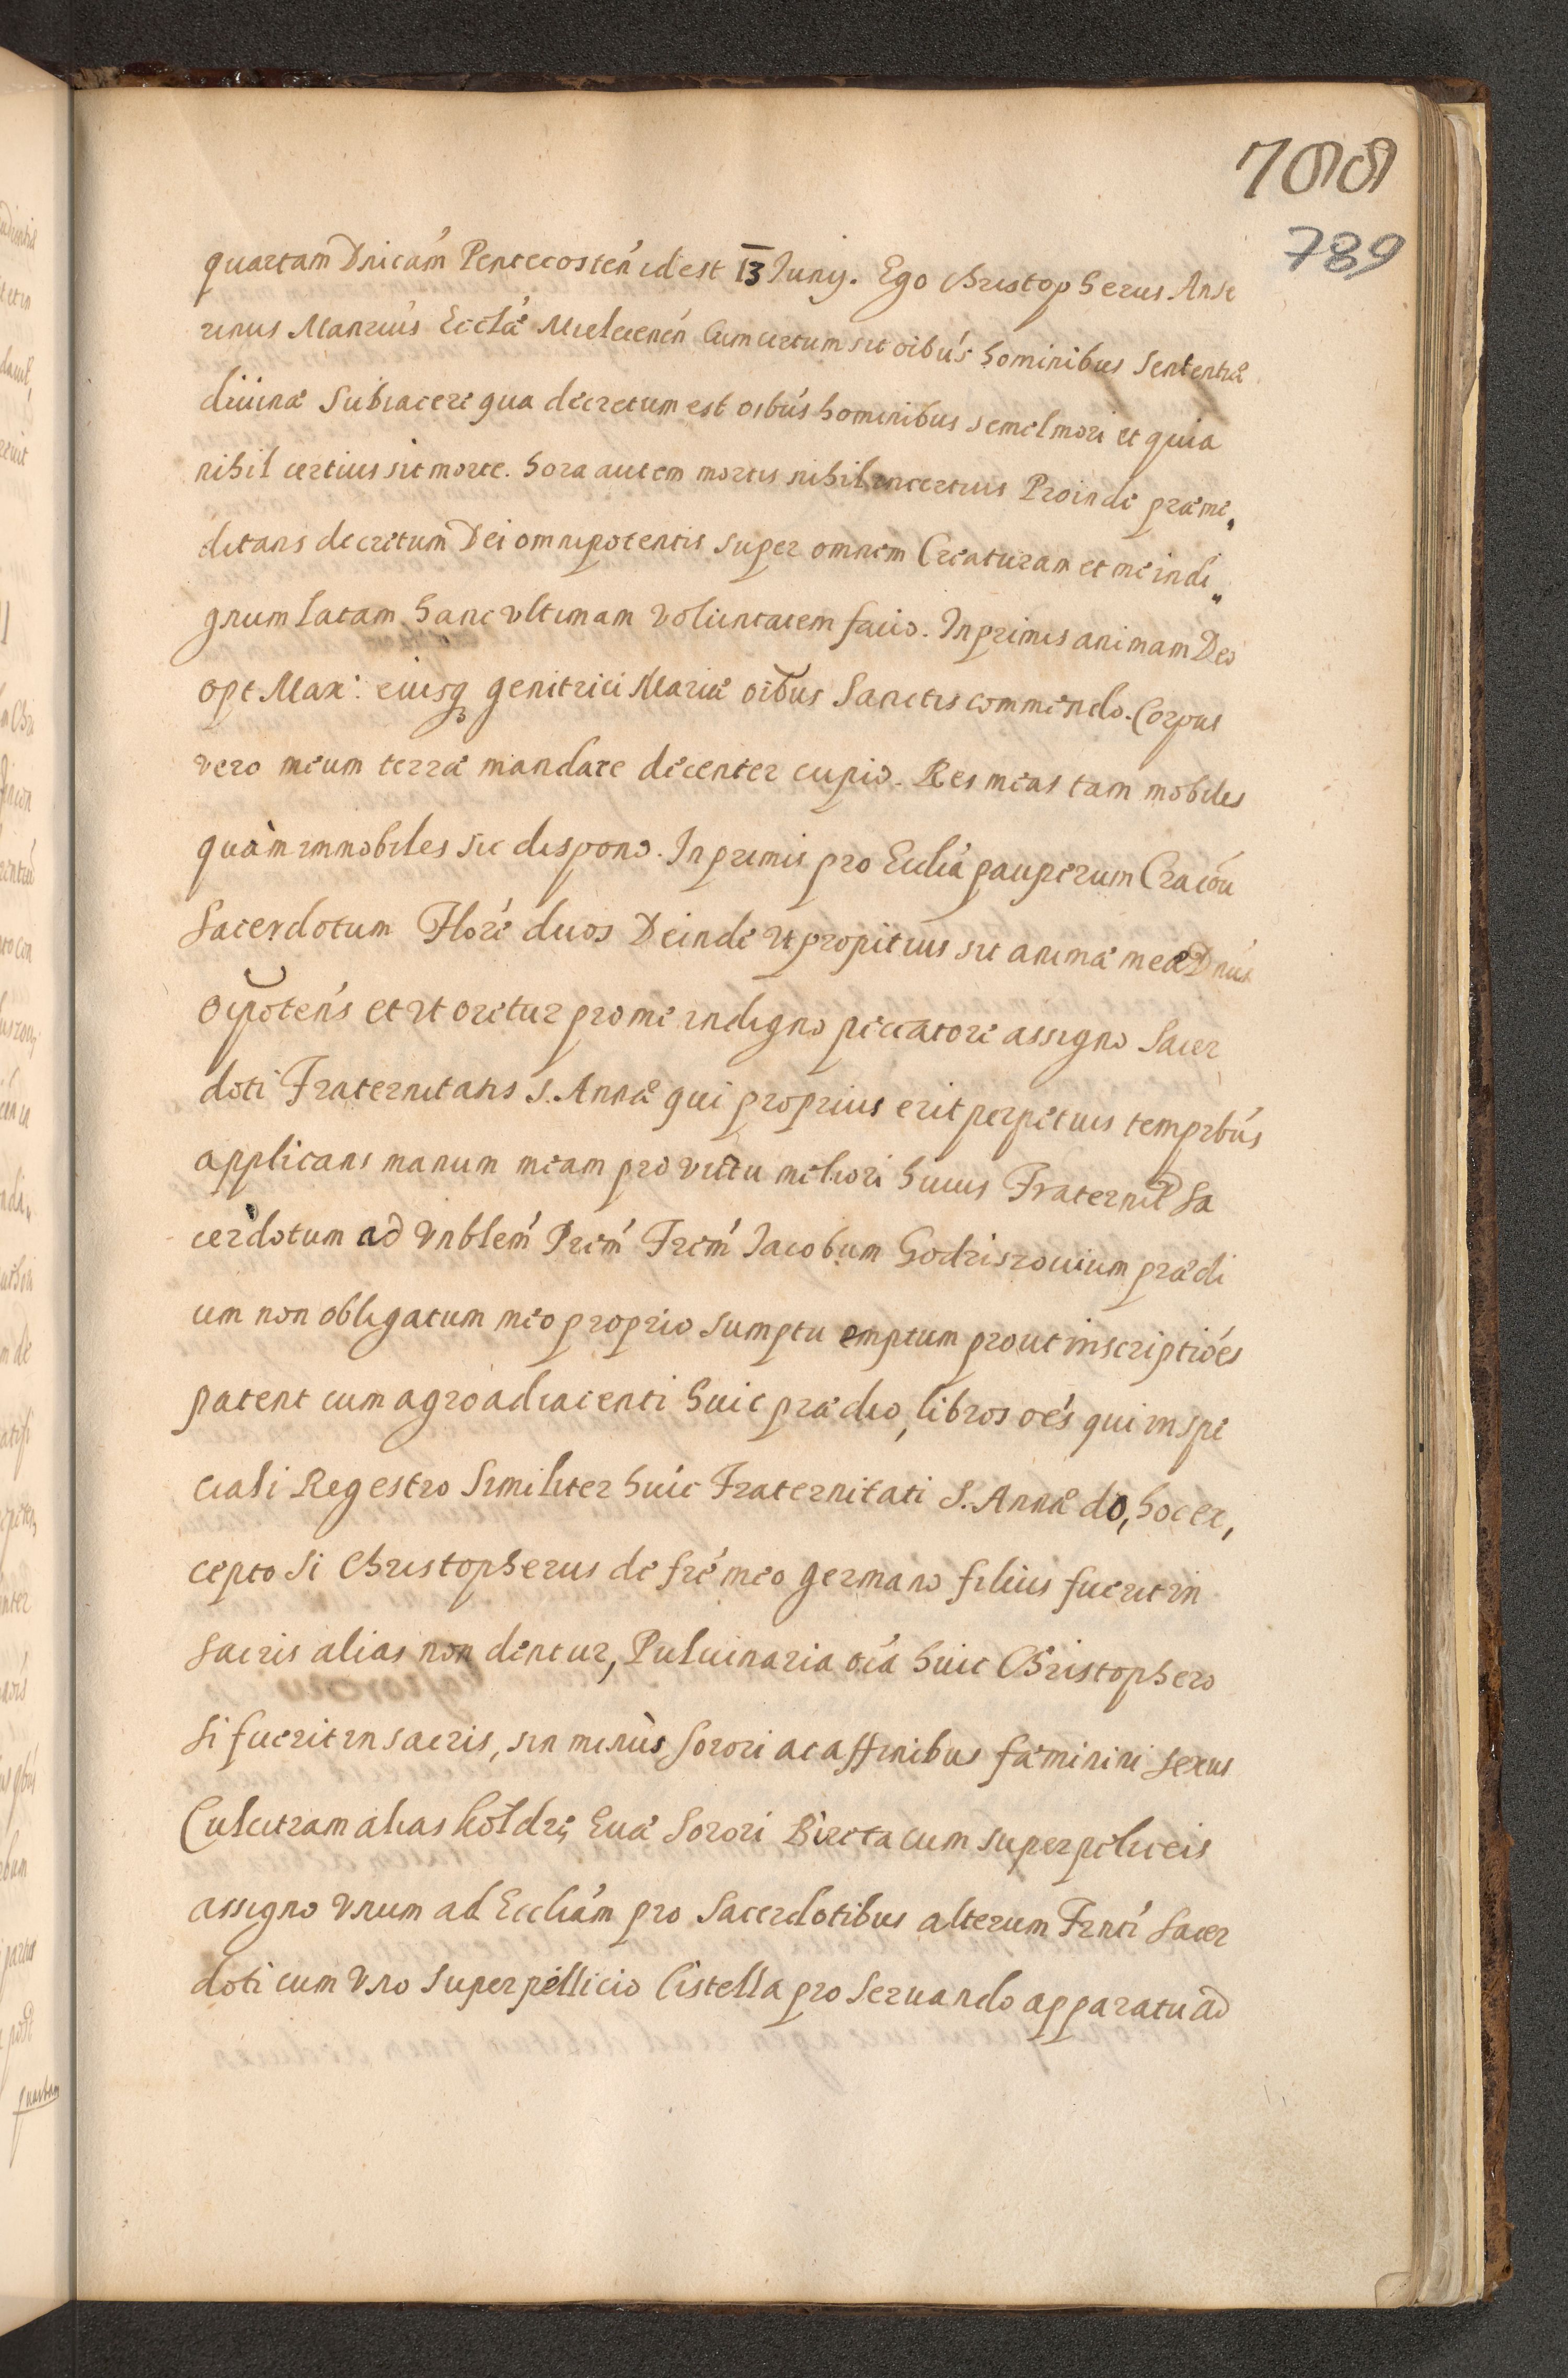 788
789
quartam Dnicám Pentecosteń id est 13 Junij. Ego Christopherus Anse
rinus Manriús Ecclӕ́ Mielecenén Cum certum sit oibús hominibus Sententiӕ
diuinӕ Subiacere qua decretum est oibús hominibus semel mori et quia
nihil certius sit morte. hora autem mortis nihil incertius Proinde prӕme„
ditans decretum Dei omnipotentis super omnem Creaturam et me indi„
gnum latam hanc vltimam voluntatem facio. Inprimis animam Deo
opt Max: eiusq genitrici Mariӕ oibus Sanctis commendo. Corpus
vero meum terrӕ mandare decenter cupio. Res meas tam mobiles
quàm immobiles sic dispono. Inprimis pro Ecclia pauperum Cracóu
Sacerdotum Flore duos Deinde vt propitius sit animӕ meӕ Dnús
oipoténs et vt oretur pro me indigno peccatore assigno Sacer
doti Fraternitatis S. Annӕ qui proprius erit perpetuis temprbús
applicans manum meam pro victu meliori huius Fraternit Sa
cerdotum ad Vnblém Preḿ Freḿ Jacobum Godziszouium prӕdi
um non obligatum meo proprio sumptu emptum prout inscriptióes
patent cum agro adiacenti huic prӕdio, libros oés qui in spe
ciali Regestro Similiter huic Fraternitati S. Annӕ do, hoc ex,
cepto Si Christopherus de fré meo germano filius fuerit in
sacris alias non dentur, Puluinaria oíá huic Christophero
Si fuerit in sacris, sin minùs Sorori ac affinibus fӕminini sexus
Culcitram alias kołdrę Euӕ Sorori Bireta cum superpeliceis
assigno vnum ad Eccliám pro Sacerdotibus alterum Frnti Sacer
doti cum vno Superpellicio Cistella pro Seruando apparatu ad